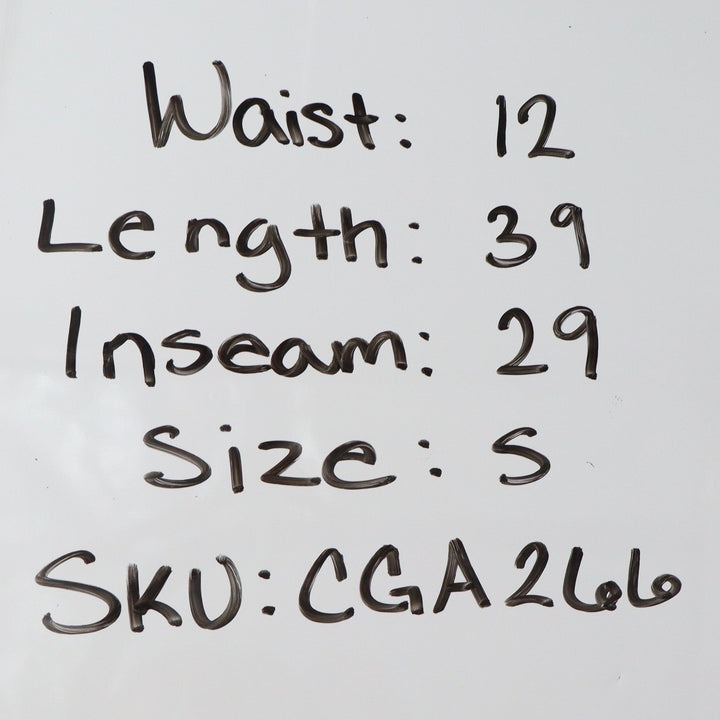 Waist: 12
Length: 39
Inseam: 29
Size: S
SKU: CGA266